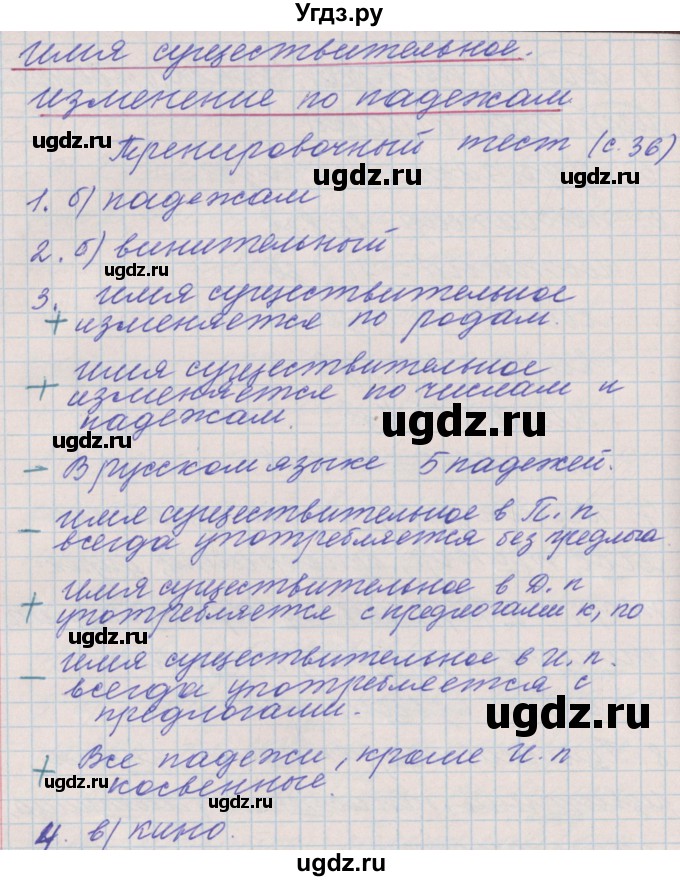 Угдз.ру
имя существительное.
изменение по падежам
ugdz.ru
Тренировочный тест (с. 36)
ugdz.ru
ugdz.ru
1. б) падежам
2. б) винительный
ugdz.ru
3. имя существительное
+ изменяется по родам.
ugdz.ru
+ имя существительное
изменяется по числам и
падежам.
ugdz.ru
– В русском языке 5 падежей.
ugdz.ru
– имя существительное в П. п
всегда употребляется без предлога
ugdz.ru
+ имя существительное в Д. п
употребляется с предлогами к, по
ugdz.ru
– имя существительное в И. п.
всегда употребляется с
предлогами.
ugdz.ru
+ Все падежи, кроме И. п
косвенные.
ugdz.ru
ugdz.ru
4. в) кино.
ugdz.ru